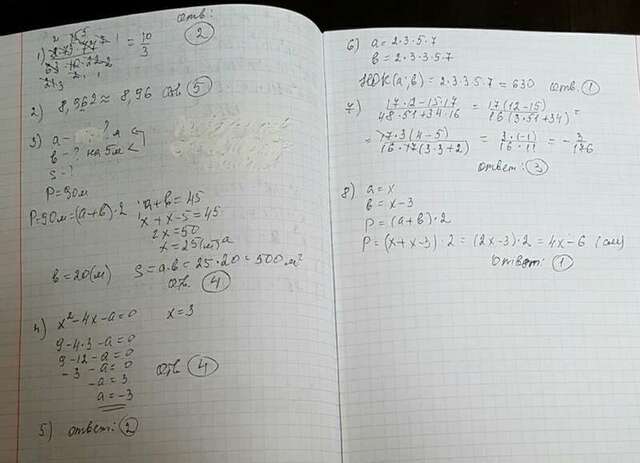 Отв:
1) = 10/3 (2)
2) 8,962 ≈ 8,96 Отв (5)
3) a - ? м
b - ? на 5м <
S - ?
P = 90м
P = 90м = (a+b)·2
a + b = 45
x + x - 5 = 45
2x = 50
x = 25(м) a
b = 20(м) S = a·b = 25·20 = 500 м²
Отв (4)
4) x² - 4x - a = 0 x = 3
9 - 4·3 - a = 0
9 - 12 - a = 0
-3 - a = 0 Отв (4)
-a = 3
a = -3
5) ответ: (2)
6) a = 2·3·5·7
b = 2·3·3·5·7
НОК(a;b) = 2·3·3·5·7 = 630 отв. (1)
7) (17·2-15·17)/(48·51+34·16) = 17(12-15)/16(3·51+34) =
= 17·3(4-5)/16·17(3·3+2) = 3·(-1)/16·11 = -3/176
ответ: (3)
8) a = x
b = x - 3
P = (a+b)·2
P = (x+x-3)·2 = (2x-3)·2 = 4x-6 (см)
Ответ: (1)